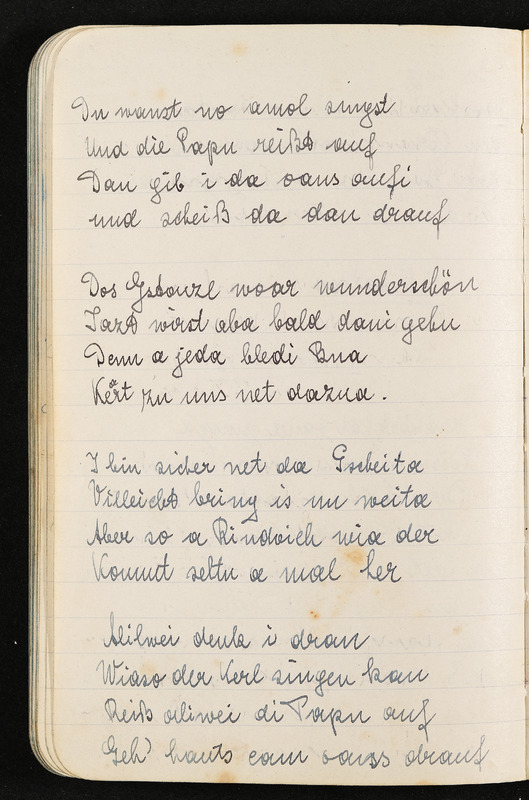 Du wanst no amol singst
Und die Papn reißt auf
Dan gib i da oans aufi
und scheiß da dan drauf
Dos Gstanzl woar wunderschön
Jazt wirst aba bald dani gehn
Denn a jeda bledi Bua
Keart zu uns net dazua.
I bin sicher net da Gscheita
Villeicht bring is nu weita
Aber so a Rindvich wia der
Kommt seltn a mal her
Aliwei denk i dran
Wiaso der Kerl singen kan
Reiß aliwei di Papn auf
Geh' hauts eam oans drauf